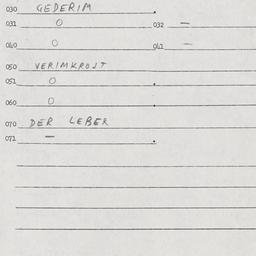 030 GEDERIM
031 O 032 —
040 O 041 —
050 VERIMKROST
051 O
060 O
070 DER LEBER
071 —